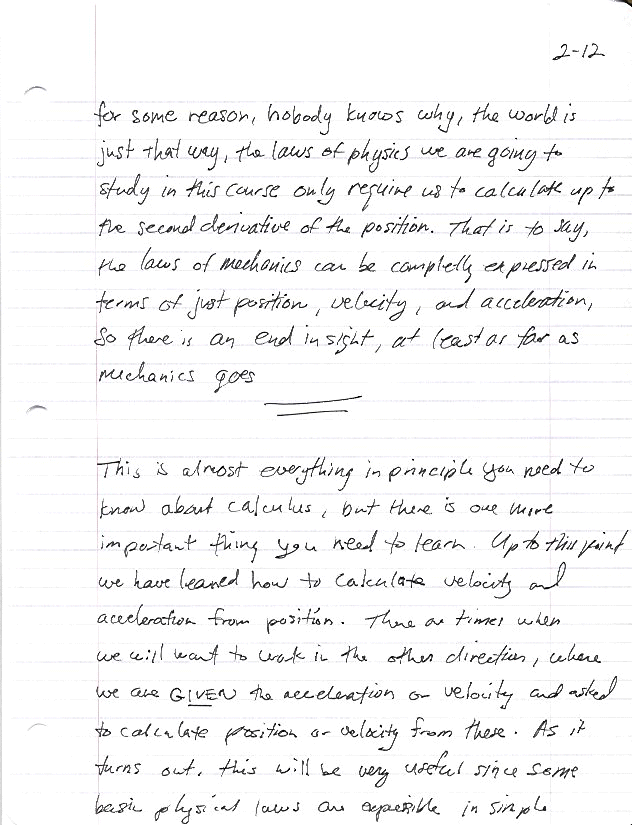 2-12
for some reason, nobody knows why, the world is
just that way, the laws of physics we are going to
study in this course only require us to calculate up to
the second derivative of the position. That is to say,
the laws of mechanics can be completly expressed in
terms of just position, velocity, and acceleration,
So there is an end in sight, at least as far as
mechanics goes
This is almost everything in principle you need to
know about calculus, but there is one more
important thing you need to learn. Up to this point
we have learned how to calculate velocity and
acceleration from position. There are times when
we will want to work in the other direction, where
we are GIVEN the acceleration or velocity and asked
to calculate position or velocity from these. As it
turns out, this will be very useful since some
basic physical laws are expressible in simple